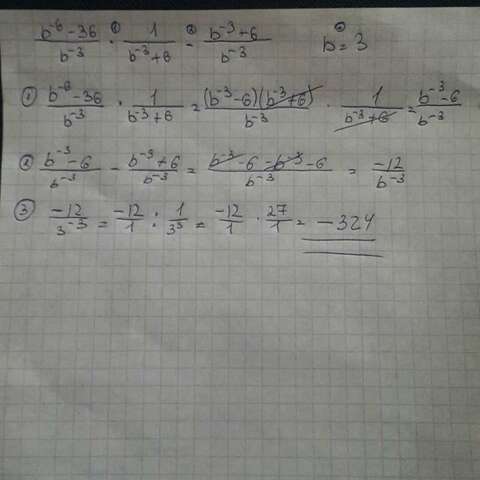 ① ② ③
\frac{b^{-6}-36}{b^{-3}} \cdot \frac{1}{b^{-3}+6} - \frac{b^{-3}+6}{b^{-3}} b=3
① \frac{b^{-6}-36}{b^{-3}} \cdot \frac{1}{b^{-3}+6} = \frac{(b^{-3}-6)(b^{-3}+6)}{b^{-3}} \cdot \frac{1}{b^{-3}+6} = \frac{b^{-3}-6}{b^{-3}}
② \frac{b^{-3}-6}{b^{-3}} - \frac{b^{-3}+6}{b^{-3}} = \frac{b^{-3}-6-b^{-3}-6}{b^{-3}} = \frac{-12}{b^{-3}}
③ \frac{-12}{3^{-3}} = \frac{-12}{1} : \frac{1}{3^{3}} = \frac{-12}{1} \cdot \frac{27}{1} = -324